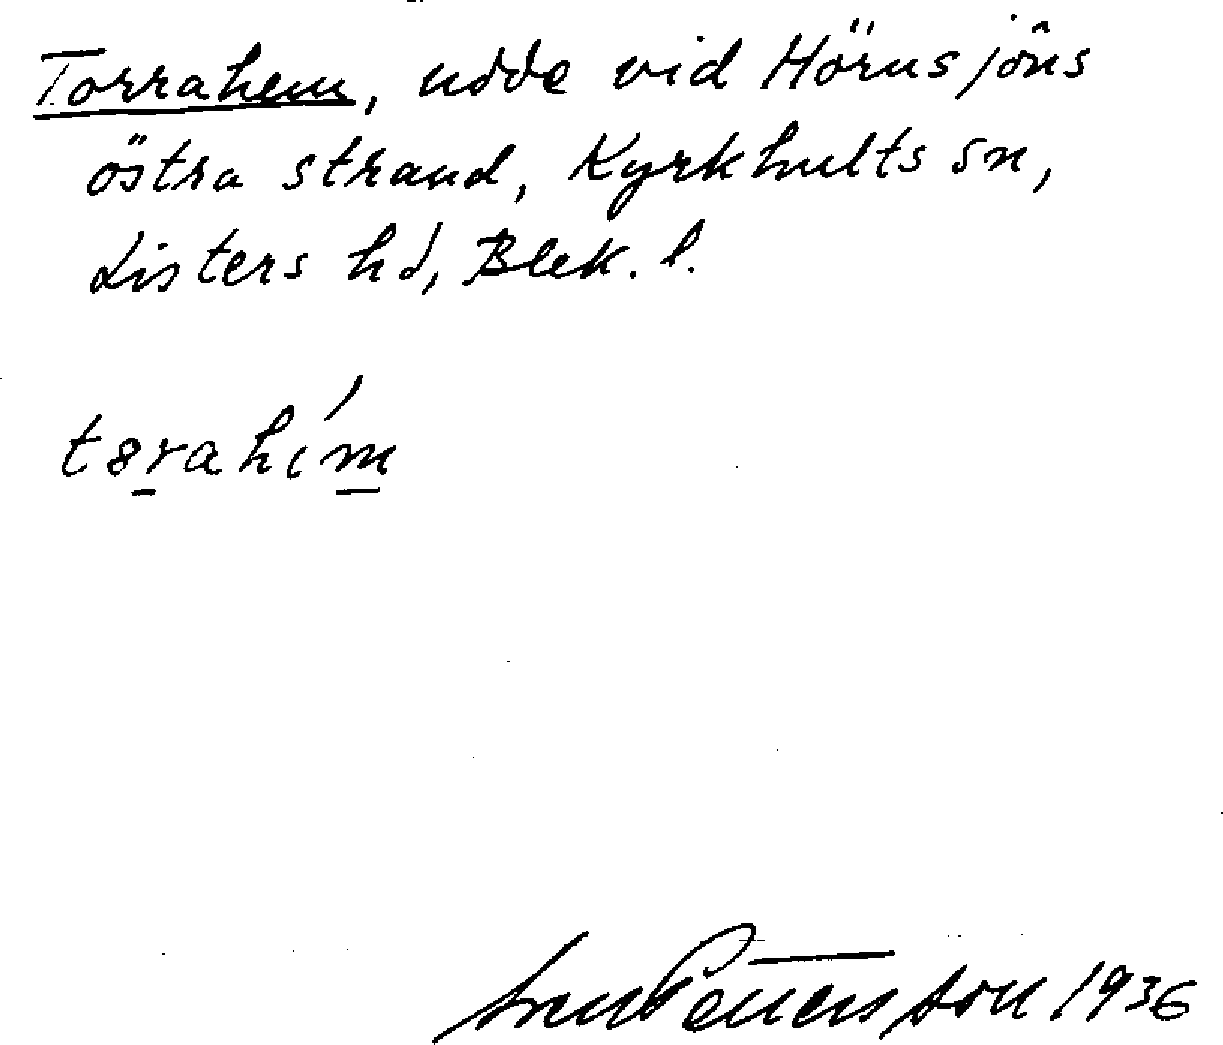 Torrahem, udde vid Hörnsjöns
östra strand, Kyrkhults sn,
Listers hd, Blek. l.
tȣrahím
Sven Pettersson 1936